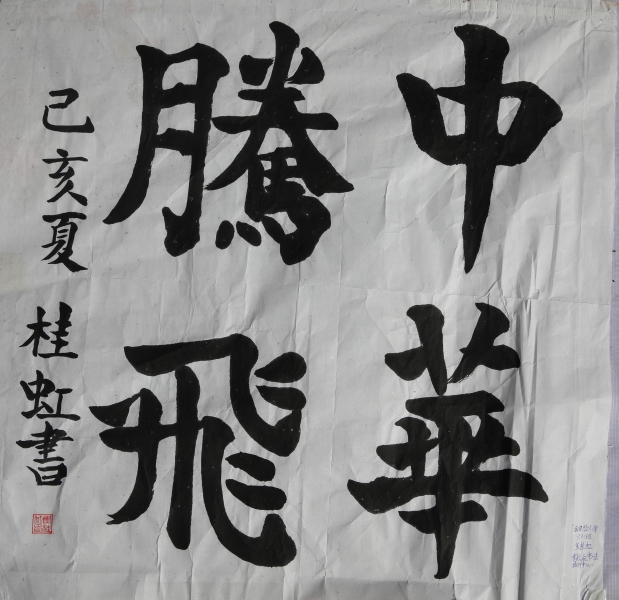 中華
騰飛
己亥夏 桂虹書